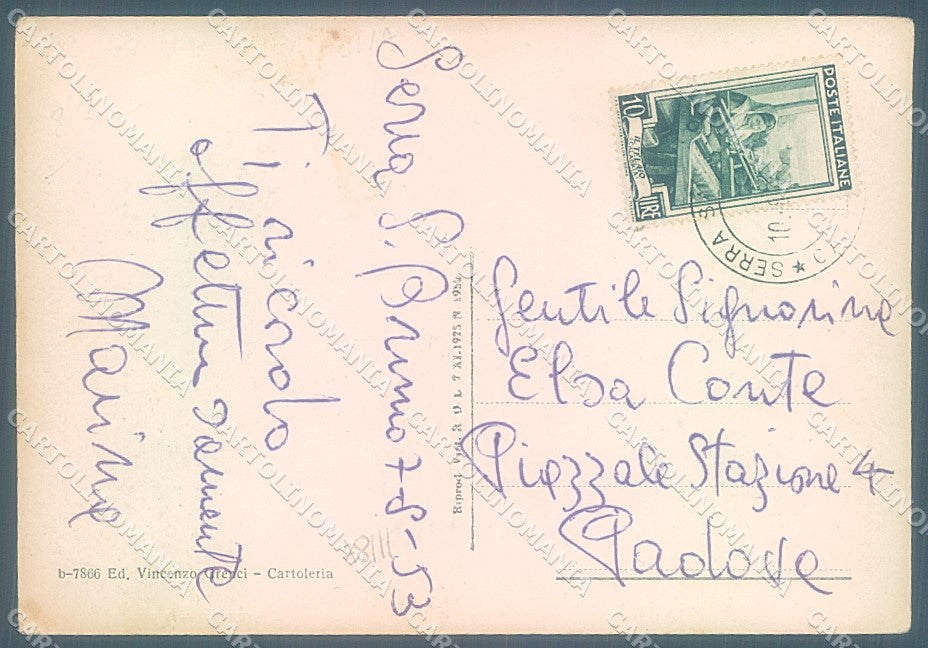 Serra S. Bruno 7-8-53
Ti ricordo
affettuosamente
Marina
Gentile Signorina
Elsa Conte
Piazzale Stazione 4
Padova
POSTE ITALIANE
10
LIRE
SERRA S
10
Riprod. Viet. R. D. L. 7 XI.1925 N.
b-7866 Ed. Vincenzo Grenci - Cartoleria
CARTOLINOMANIA